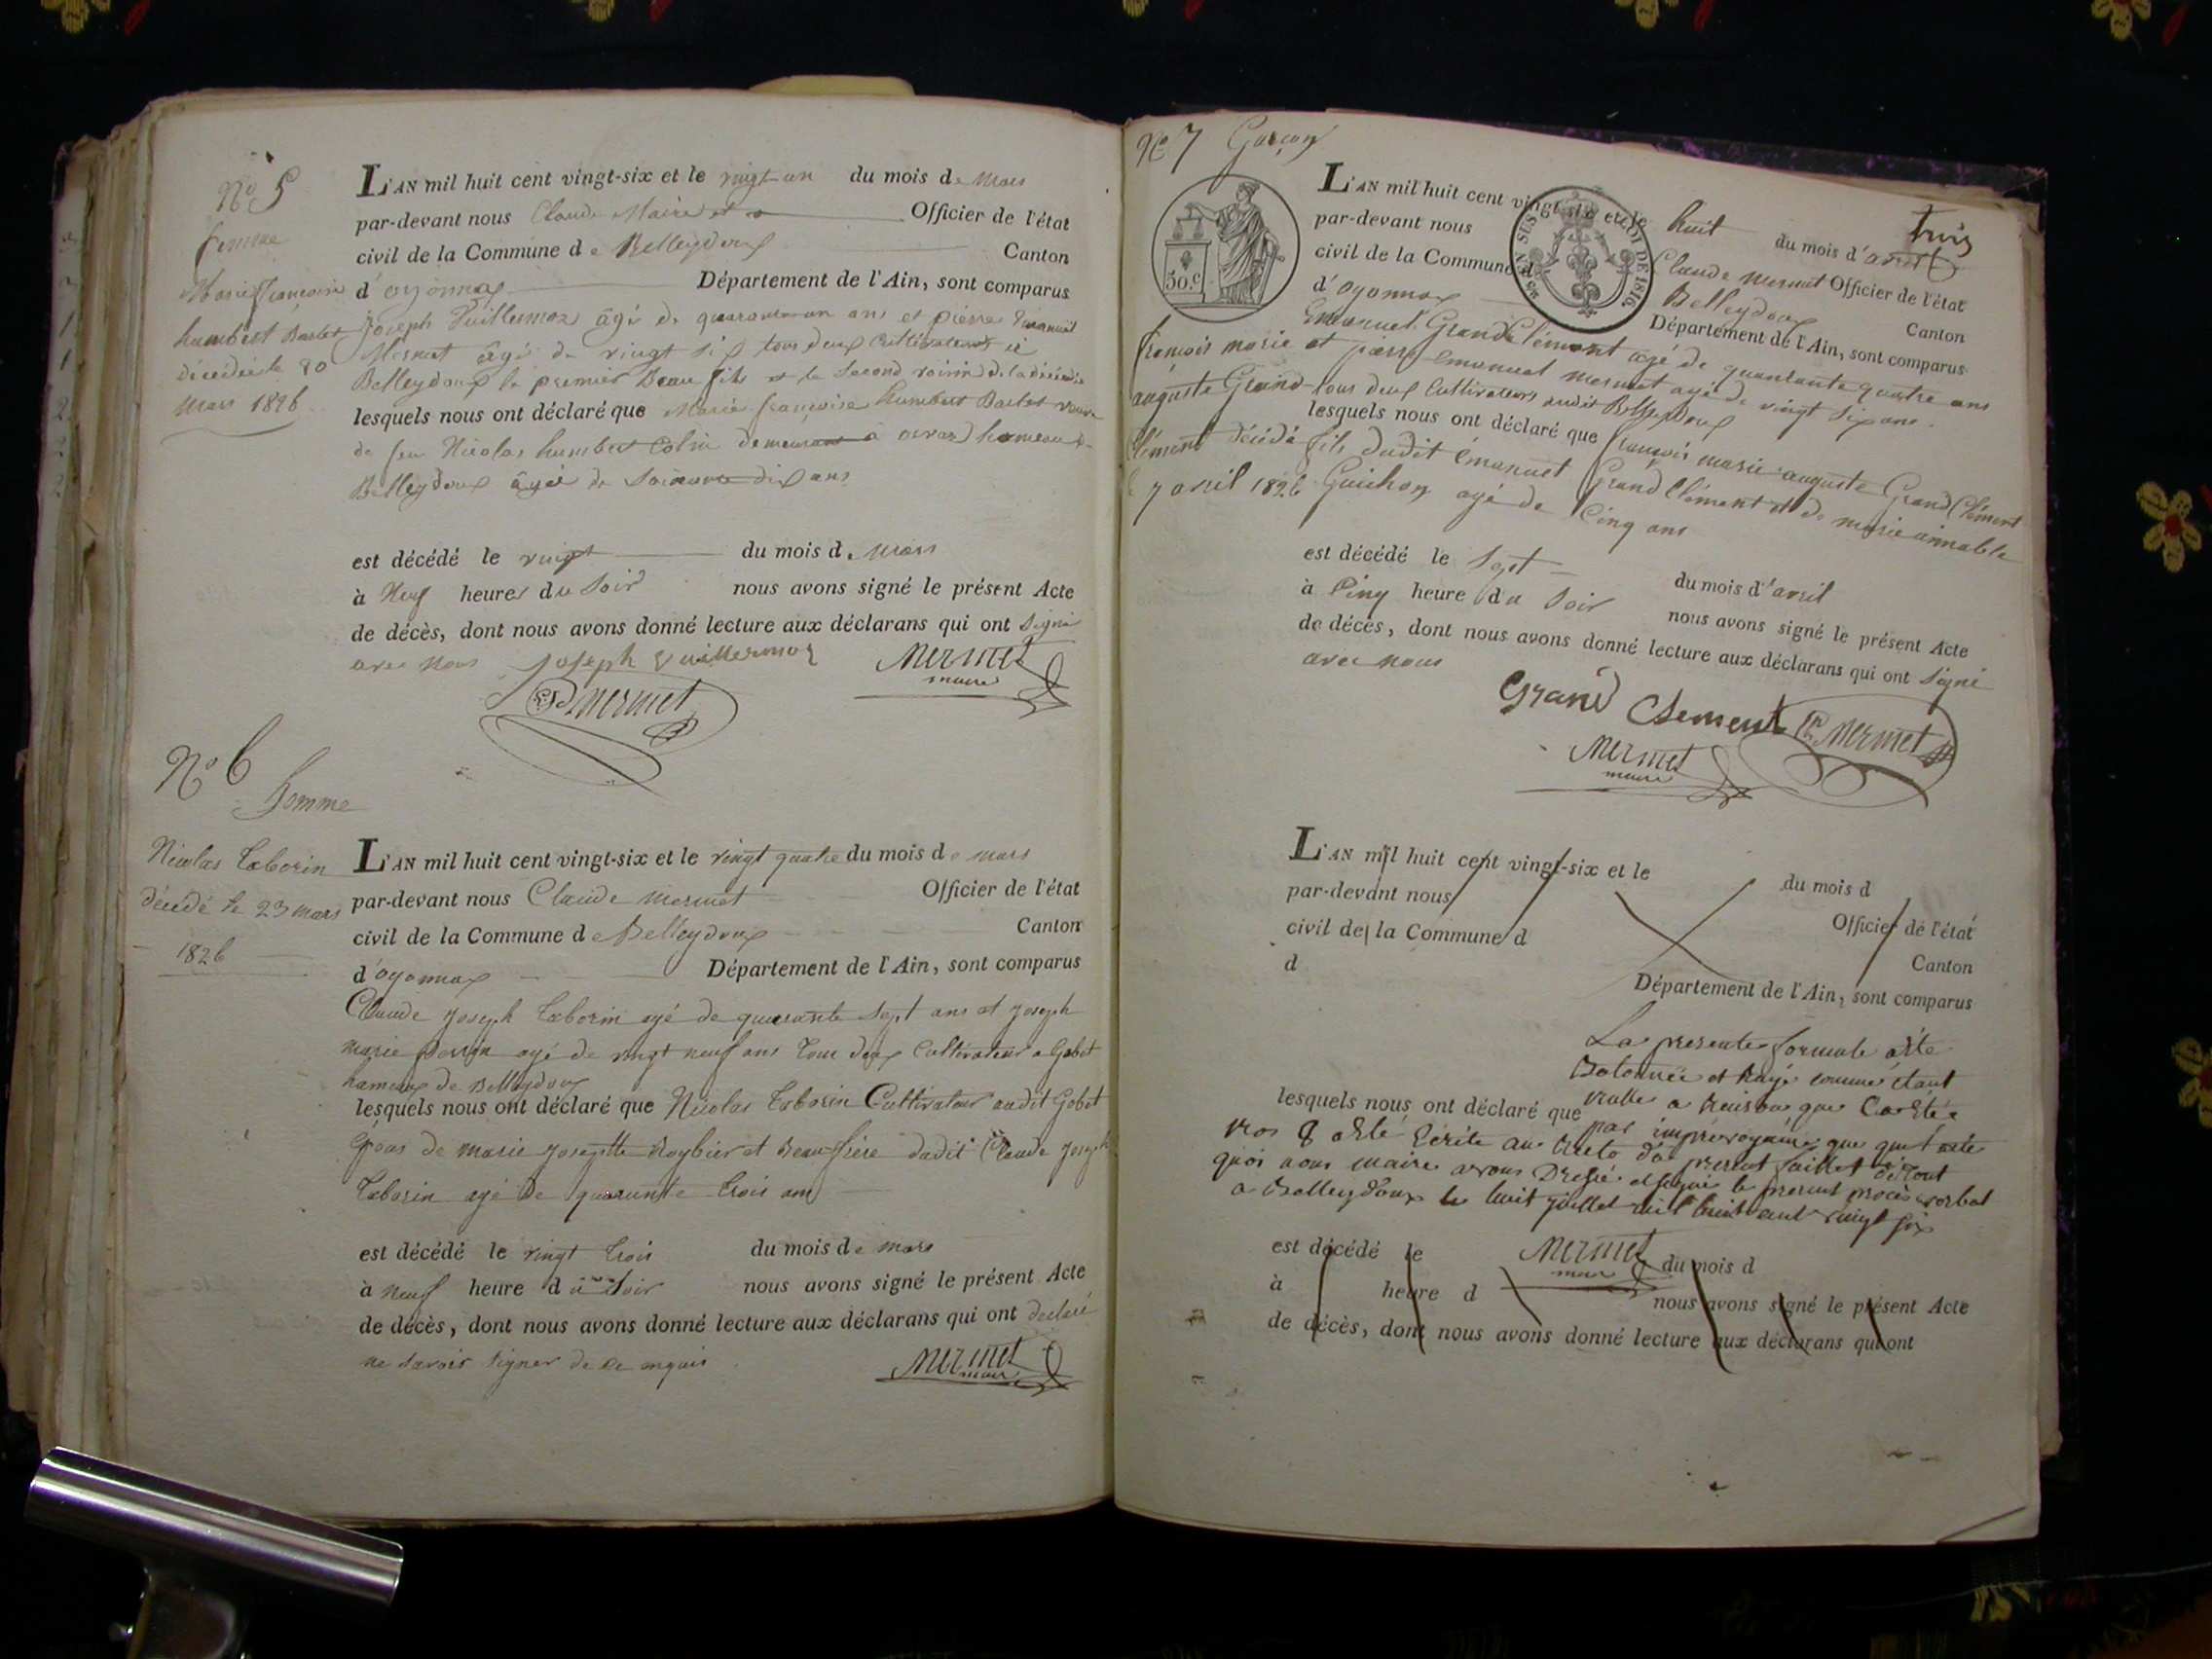 No 5
femme
Marie françoise
humbert Barlet
décédée le 20
mars 1826
L'AN mil huit cent vingt-six et le vingt un du mois de mars
par-devant nous Claude Officier de l'état
civil de la Commune de Belleydoux Canton
d'oyonnax Département de l'Ain, sont comparus
Joseph Vuillermoz âgé de quarante un ans et pierre Emanuel
Mermet âgé de vingt six tous deux Cultivateurs
Belleydoux le premier Beau fils et le Second voisin de la décédée
lesquels nous ont déclaré que Marie françoise humbert Barlet veuve
de feu Nicolas humbert Colin demeurant à hameau de
Belleydoux âgée de Soixante dix ans
est décédé le vingt du mois de Mars
à Neuf heures du Soir nous avons signé le présent Acte
de décès, dont nous avons donné lecture aux déclarans qui ont Signé
avec nous Joseph Vuillermoz Mermet
maire
Mermet
No 6
homme
Nicolas Taborin
décédé le 23 mars
1826
L'AN mil huit cent vingt-six et le vingt quatre du mois de mars
par-devant nous Claude mermet Officier de l'état
civil de la Commune de Belleydoux Canton
d'oyonnax Département de l'Ain, sont comparus
Claude joseph Taborin agé de quarante sept ans et joseph
marie agé de vingt neuf ans tous deux Cultivateur a Gobet
hameau de Belleydoux
lesquels nous ont déclaré que Nicolas Taborin Cultivateur audit Gobet
Epoux de marie josephte et Beau frère dudit Claude joseph
Taborin agé de quarante trois ans
est décédé le vingt trois du mois de mars
à neuf heure du Soir nous avons signé le présent Acte
de décès, dont nous avons donné lecture aux déclarans qui ont declaré
ne savoir signer de ce enquis
Mermet
maire
No 7 Garçon
trois
50.C
EN SUS LOI DE 1816.
L'AN mil huit cent vingt-six et le huit du mois d'avril
par-devant nous Claude mermet Officier de l'état
civil de la Commune d Belleydoux Canton
d'oyonnax Département de l'Ain, sont comparus
Emanuel Grand Clément agé de quarante quatre ans
et pierre emanuel mermet agé de vingt six ans
tous deux Cultivateurs audit Belleydoux
françois marie
auguste Grand
Clément décédé
le 7 avril 1826
lesquels nous ont déclaré que françois marie auguste Grand Clément
fils dudit émanuel Grand Clément et de marie aimable
Guichon agé de Cinq ans
est décédé le Sept du mois d'avril
à Cinq heure du Soir nous avons signé le présent Acte
de décès, dont nous avons donné lecture aux déclarans qui ont Signé
avec nous
Grand Clement Mermet
Mermet
maire
L'AN mil huit cent vingt-six et le du mois d
par-devant nous Officier de l'état
civil de la Commune d Canton
d Département de l'Ain, sont comparus
La presente formule a été
Batonnée et Rayé comme étant
nulle a Raison que
lesquels nous ont déclaré que
par imprevoyance que
nos 8 a été Ecrite au du present feuillet de tout
quoi nous maire avons Dressé et signé le present procès verbal
a Belleydoux le huit juillet mil huit cent vingt six
est décédé le du mois d
Mermet
maire
à heure d nous avons signé le présent Acte
de décès, dont nous avons donné lecture aux déclarans qui ont